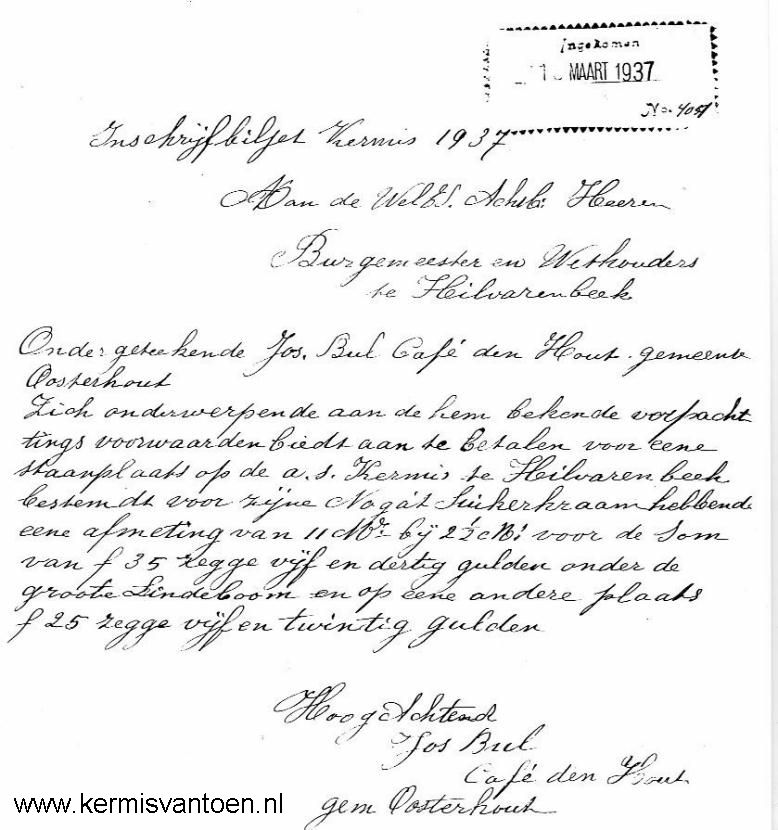 Ingekomen
1 MAART 1937
No. 4051
Inschrijfbiljet Kermis 1937
Aan de WelEd. Achtb: Heeren
Burgemeester en Wethouders
te Hilvarenbeek
Ondergeteekende Jos. Bul Café den Hout gemeente
Oosterhout
Zich onderwerpende aan de hem bekende verpacht
tings voorwaarden biedt aan te betalen voor eene
staanplaats op de a.s. Kermis te Hilvarenbeek
bestemdt voor zijne Nogat Suikerkraam hebbende
eene afmeting van 11 Mr bij 2½ M: voor de Som
van f 35 zegge vijf en dertig gulden onder de
groote Lindeboom en op eene andere plaats
f 25 zegge vijf en twintig gulden
HoogAchtend
Jos Bul
Café den Hout
gem Oosterhout
www.kermisvantoen.nl